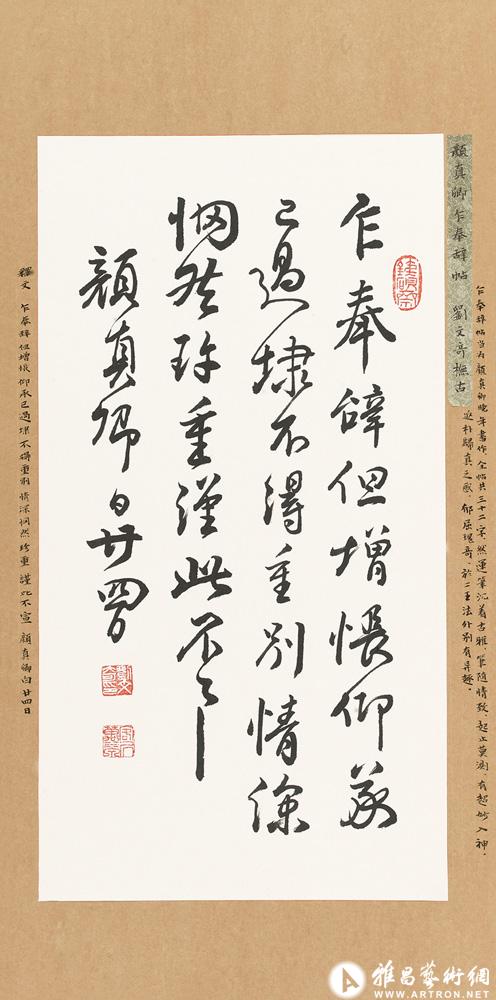 乍奉辭帖当为顏真卿晚年書作,全帖共三十二字,然運筆沉着古雅,筆隨情致,起止莫測,有超妙入神,
返朴歸真之感。郁屈瑰奇,於二王法外別有异趣。
顏真卿乍奉辭帖 劉文哥橅古
乍奉辭但增悵仰承
已過埭不得重別情深
惘然珍重謹此不宣
顏真卿白廿四日
釋文 乍奉辭但增悵仰承已過埭不得重別 情深惘然珍重 謹此不宣 顏真卿白廿四日
雅昌藝術網
WWW.ARTRON.NET